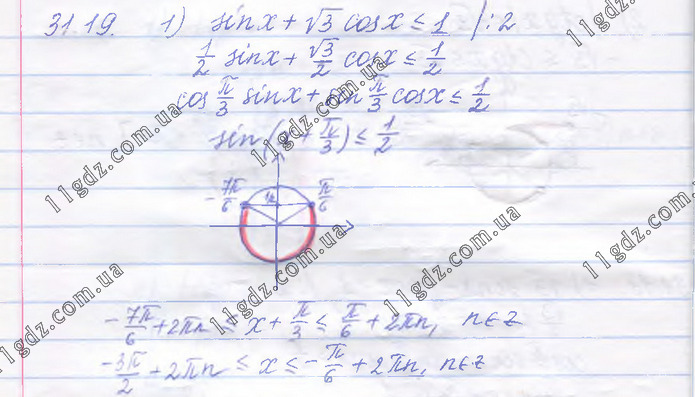 31.19. 1) sin x + √3 cos x ≤ 1 /:2
1/2 sin x + √3/2 cos x ≤ 1/2
cos π/3 sin x + sin π/3 cos x ≤ 1/2
sin (x + π/3) ≤ 1/2
-7π/6 1/2 π/6
-7π/6 + 2πn ≤ x + π/3 ≤ π/6 + 2πn, n∈Z
-3π/2 + 2πn ≤ x ≤ -π/6 + 2πn, n∈Z
11gdz.com.ua
11gdz.com.ua
11gdz.com.ua
11gdz.com.ua
11gdz.com.ua
11gdz.com.ua